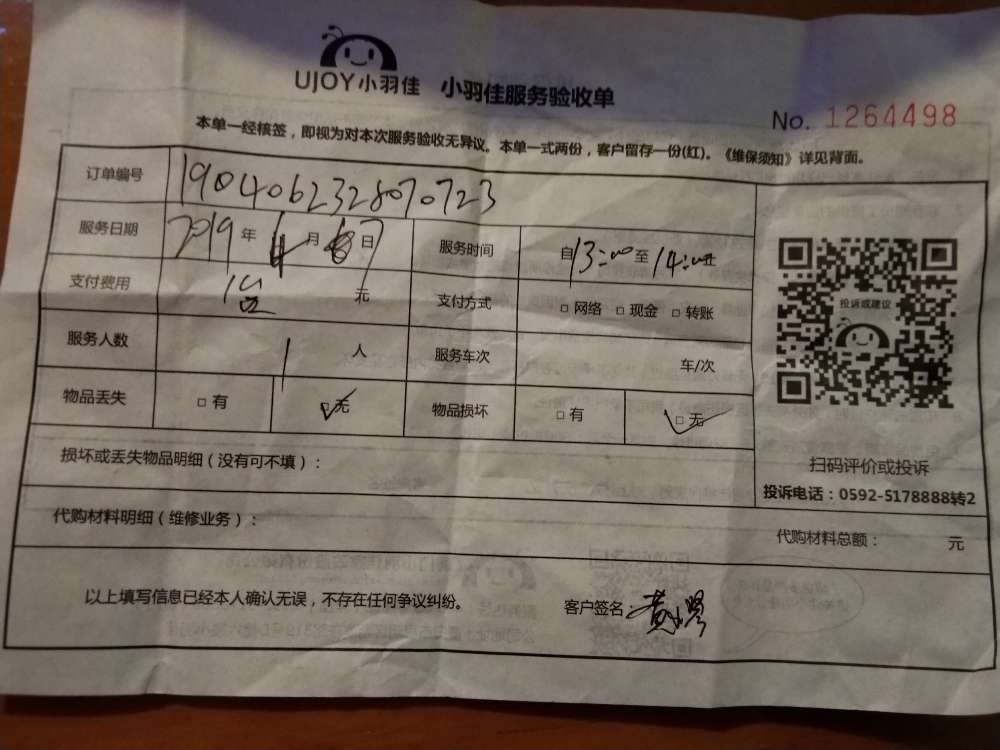 UJOY小羽佳 小羽佳服务验收单
No. 1264498
本单一经核签，即视为对本次服务验收无异议。本单一式两份，客户留存一份(红)。《维保须知》详见背面。
订单编号 1904062328070723
服务日期 2019 年 4 月 7 日 服务时间 自 13:00 至 14:00 止
支付费用 元 支付方式 □ 网络 □ 现金 □ 转账
服务人数 1 人 服务车次 车/次
物品丢失 □ 有 ☑ 无 物品损坏 □ 有 ☑ 无
投诉或建议
扫码评价或投诉
投诉电话：0592-5178888转2
损坏或丢失物品明细（没有可不填）：
代购材料明细（维修业务）： 代购材料总额： 元
以上填写信息已经本人确认无误，不存在任何争议纠纷。 客户签名：